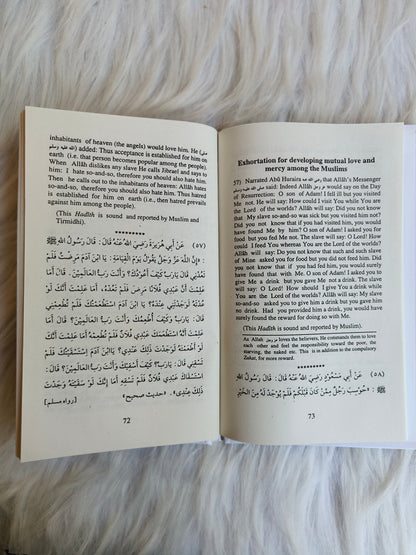 inhabitants of heaven (the angels) would love him. He
(صلى الله عليه وسلم) added: Thus acceptance is established for him on
earth (i.e. that person becomes popular among the people)
When Allāh dislikes any slave He calls Jibrael and says to
him: I hate so-and-so, therefore you should also hate him.
Then he calls out to the inhabitants of heaven: Allāh hates
so-and-so, therefore you should also hate him. Thus hatred
is established for him on earth (i.e., then hatred prevails
against him among the people).
(This Hadith is sound and reported by Muslim and
Tirmidhi).
**********
(٥٧) عَنْ أَبِي هُرَيْرَةَ رَضِيَ اللهُ عَنْهُ قَالَ : قَالَ رَسُولُ اللهِ ﷺ
: «إِنَّ اللهَ عَزَّ وَجَلَّ يَقُولُ يَوْمَ الْقِيَامَةِ: يَا ابْنَ آدَمَ مَرِضْتُ فَلَمْ
تَعُدْنِي قَالَ: يَارَبِّ كَيْفَ أَعُودُكَ؟ وَأَنْتَ رَبُّ الْعَالَمِيْنَ؟ قَالَ: أَمَا
عَلِمْتَ أَنَّ عَبْدِي فُلَانًا مَرِضَ فَلَمْ تَعُدْهُ أَمَا عَلِمْتَ أَنَّكَ لَوْ
عُدْتَهُ لَوَجَدْتَنِي عِنْدَهُ؟ يَا ابْنَ آدَمَ اسْتَطْعَمْتُكَ فَلَمْ تُطْعِمْنِي
قَالَ: يَارَبِّ وَكَيْفَ أُطْعِمُكَ؟ وَأَنْتَ رَبُّ الْعَالَمِيْنَ؟ قَالَ: أَمَا
عَلِمْتَ أَنَّهُ اسْتَطْعَمَكَ عَبْدِي فُلَانٌ فَلَمْ تُطْعِمْهُ أَمَا عَلِمْتَ أَنَّكَ
لَوْ أَطْعَمْتَهُ لَوَجَدْتَ ذَلِكَ عِنْدِي؟ يَا ابْنَ آدَمَ اسْتَسْقَيْتُكَ فَلَمْ
تَسْقِنِي قَالَ: يَارَبِّ! كَيْفَ أَسْقِيْكَ وَأَنْتَ رَبُّ الْعَالَمِيْنَ؟ قَالَ:
اسْتَسْقَاكَ عَبْدِي فُلَانٌ فَلَمْ تَسْقِهِ أَمَا إِنَّكَ لَوْ سَقَيْتَهُ وَجَدْتَ
ذَلِكَ عِنْدِي». «حديث صحيح» (رواه مسلم)
72
Exhortation for developing mutual love and
mercy among the Muslims
57) Narrated Abū Huraira رضي الله عنه that Allāh's Messenger
صلى الله عليه وسلم said: Indeed Allāh عز وجل would say on the Day
of Resurrection: O son of Adam! I fell ill but you did not visit
Me not. He will say: How could I visit You while You are
the Lord of the worlds? Allāh will say: Did you not know
that My slave so-and-so was sick but you did not visit him.
Did you not know that if you had visited him, you would
have found Me by him! O son of Adam! I asked you for
food but you fed Me not. The slave will say: O Lord! How
could I feed You whereas You are the Lord of the worlds?
Allāh will say: Do you not know that such and such slave
of Mine asked you for food but you did not feed him. Did
you not know that if you had fed him, you would surely
have found that with Me. O son of Adam! I asked you to
give Me a drink but you gave Me not a drink. The slave
will say: O Lord! How should I give You a drink while
You are the Lord of the worlds? Allāh will say: My slave
so-and-so asked you to give him a drink but you gave him
no drink. Had you provided him a drink, you would surely
have found the reward for doing so with Me.
(This Hadith is sound and reported by Muslim).
As Allāh عز وجل loves the believers, He commands them to love
each other and feel the responsibility toward the poor, the
starving, the naked etc. This is in addition to the compulsory
Zakat, for more reward.
**********
(٥٨) عَنْ أَبِي مَسْعُودٍ رَضِيَ اللهُ عَنْهُ قَالَ: قَالَ رَسُولُ اللهِ
ﷺ : «حُوسِبَ رَجُلٌ مِمَّنْ كَانَ قَبْلَكُمْ فَلَمْ يُوجَدْ لَهُ مِنَ الْخَيْرِ
73